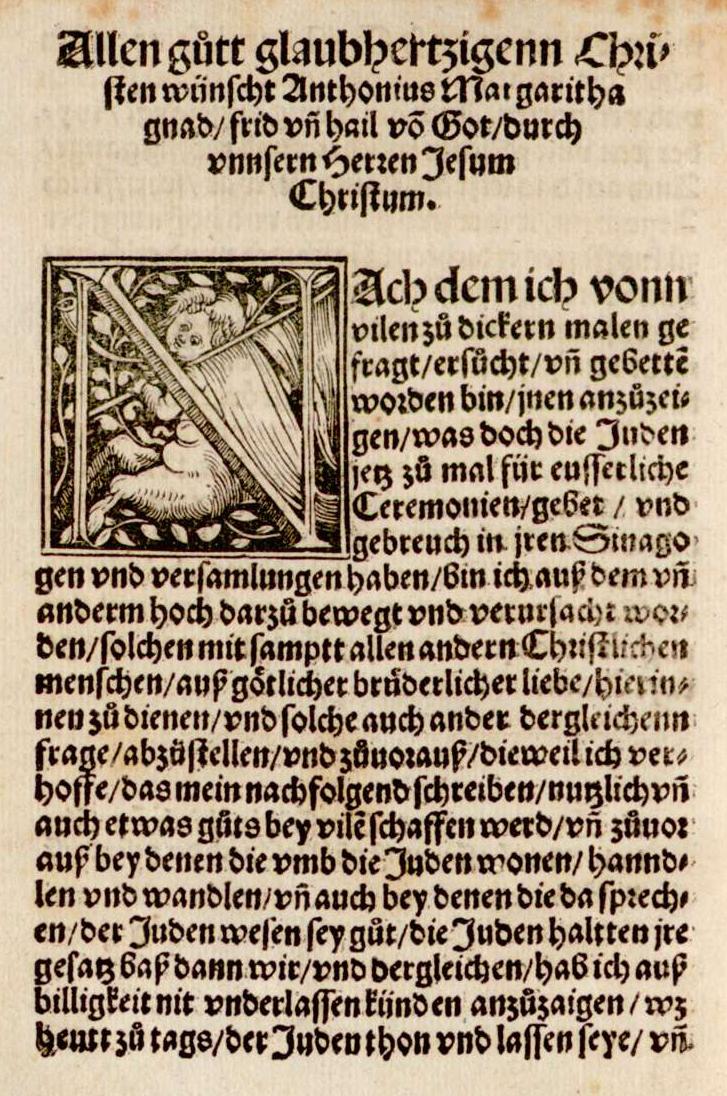 Allen gůtt glaubhertzigenn Chri⸗
sten wünscht Anthonius Margaritha
gnad/ frid vñ hail võ Got/durch
vnnsern Herren Jesum
Christum.
NAch dem ich vonn
vilen zů dickern malen ge
fragt/ersůcht/vñ gebettẽ
worden bin/jnen anzůzei⸗
gen/was doch die Juden
jetz zů mal für eusserliche
Ceremonien/gebet / vnd
gebreuch in jren Sinago⸗
gen vnd versamlungen haben/bin ich auß dem vñ
anderm hoch darzů bewegt vnd verursacht wor⸗
den/solchen mit samptt allen andern Christlichen
menschen/auß götlicher brüderlicher liebe/hierin⸗
nen zů dienen/vnd solche auch ander dergleichenn
frage/abzůstellen/vnd zůuorauß/dieweil ich ver⸗
hoffe/das mein nachfolgend schreiben/nutzlich vñ
auch etwas gůts bey vilẽ schaffen werd/vñ zůuor
auß bey denen die vmb die Juden wonen/ hannd⸗
len vnd wandlen/vñ auch bey denen die da sprech⸗
en/der Juden wesen sey gůt/die Juden haltten jre
gesatz baß dann wir/vnd dergleichen/hab ich auß
billigkeit nit vnderlassen künden anzůzaigen / wz
heutt zů tags/der Juden thon vnd lassen seye/ vñ